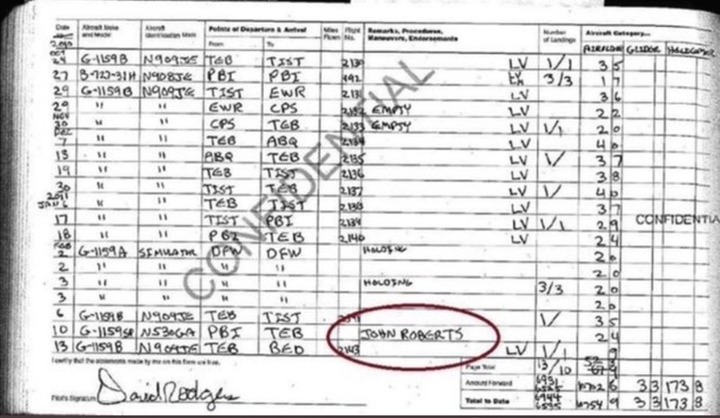 Date Aircraft Make and Model Aircraft Identification Mark Points of Departure & Arrival Miles Flown Flight No. Remarks, Procedures, Maneuvers, Endorsements Number of Landings Aircraft Category...
From To AIRPLANE GLIDER
OCT
24 G-1159B N909JE TEB TIST 2130 LV 1/1 3 5
27 B-727-31H N908JE PBI PBI 492 3/3 1 7
29 G-1159B N909JE TIST EWR 2131 LV 3 6
29 " " EWR CPS 2132 EMPTY LV 2 2
NOV
30 " " CPS TEB 2133 EMPTY LV 1/1 2 0
DEC
7 " " TEB ABQ 2134 LV 4 0
13 " " ABQ TEB 2135 LV 1/ 3 7
19 " " TEB TIST 2136 LV 3 8
30 " " TIST TEB 2137 LV 1/ 4 0
2011
JAN 6 " " TEB TIST 2138 LV 3 7
17 " " TIST PBI 2139 LV 1/1 2 9
18 " " PBI TEB 2140 LV 2 4
FEB
2 G-1159A SIMULATOR DFW DFW HOLDING 2 0
2 " " " " 2 0
3 " " " " HOLDING 3/3 2 0
3 " " " " 2 0
6 G-1159B N909JE TEB TIST 1/ 3 5
10 N530GA PBI TEB JOHN ROBERTS 2 4
13 G-1159B N909JE TEB BED 2143 LV 1/1 9
CONFIDENTIAL
CONFIDENTIA
I certify that the statements made by me on this form are true.
Pilot's Signature David Rodgers
Page Total 13/10
Amount Forward 33 173 8
Total to Date 33 173 8